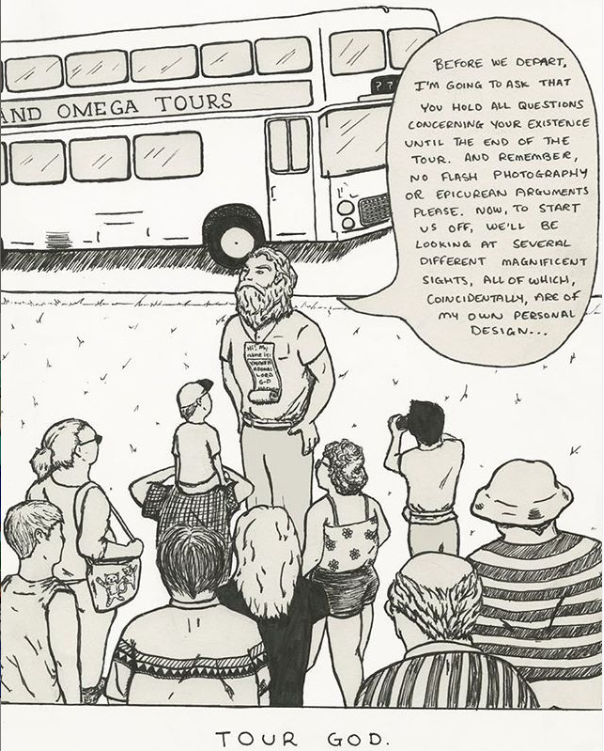 AND OMEGA TOURS
??
BEFORE WE DEPART,
I'M GOING TO ASK THAT
YOU HOLD ALL QUESTIONS
CONCERNING YOUR EXISTENCE
UNTIL THE END OF THE
TOUR. AND REMEMBER,
NO FLASH PHOTOGRAPHY
OR EPICUREAN ARGUMENTS
PLEASE. NOW, TO START
US OFF, WE'LL BE
LOOKING AT SEVERAL
DIFFERENT MAGNIFICENT
SIGHTS, ALL OF WHICH,
COINCIDENTALLY, ARE OF
MY OWN PERSONAL
DESIGN...
HI! MY
NAME IS:
LORD
GOD
TOUR GOD.